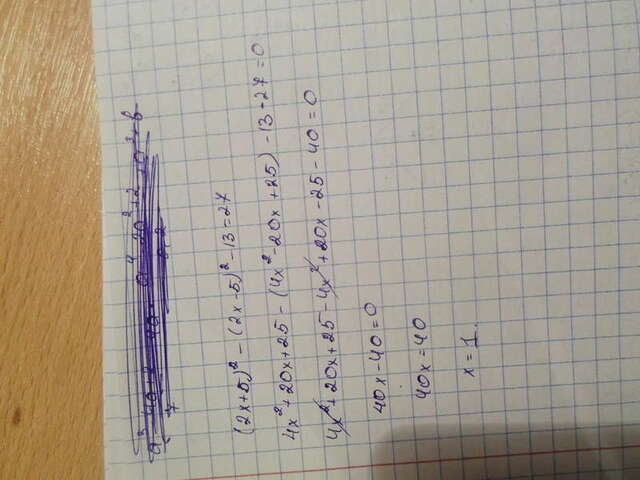 (2x+5)² - (2x-5)² - 13 = 27
4x² + 20x + 25 - (4x² - 20x + 25) - 13 - 27 = 0
4x² + 20x + 25 - 4x² + 20x - 25 - 40 = 0
40x - 40 = 0
40x = 40
x = 1.